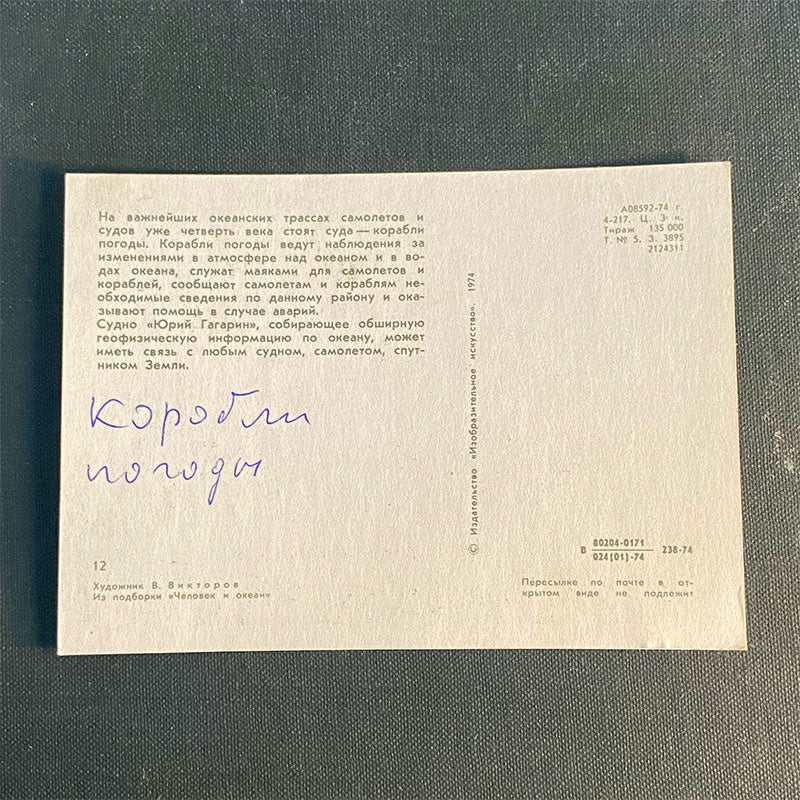 На важнейших океанских трассах самолетов и
судов уже четверть века стоят суда — корабли
погоды. Корабли погоды ведут наблюдения за
изменениями в атмосфере над океаном и в во-
дах океана, служат маяками для самолетов и
кораблей, сообщают самолетам и кораблям не-
обходимые сведения по данному району и ока-
зывают помощь в случае аварий.
Судно «Юрий Гагарин», собирающее обширную
геофизическую информацию по океану, может
иметь связь с любым судном, самолетом, спут-
ником Земли.
Коробли
погоды
12
Художник В. Викторов
Из подборки «Человек и океан»
© Издательство «Изобразительное искусство». 1974
А08592-74 г.
4-217. Ц. 3 к.
Тираж 135 000
Т. № 5. З. 3895
2124311
В 80204-0171 238-74
024(01)-74
Пересылке по почте в от-
крытом виде не подлежит